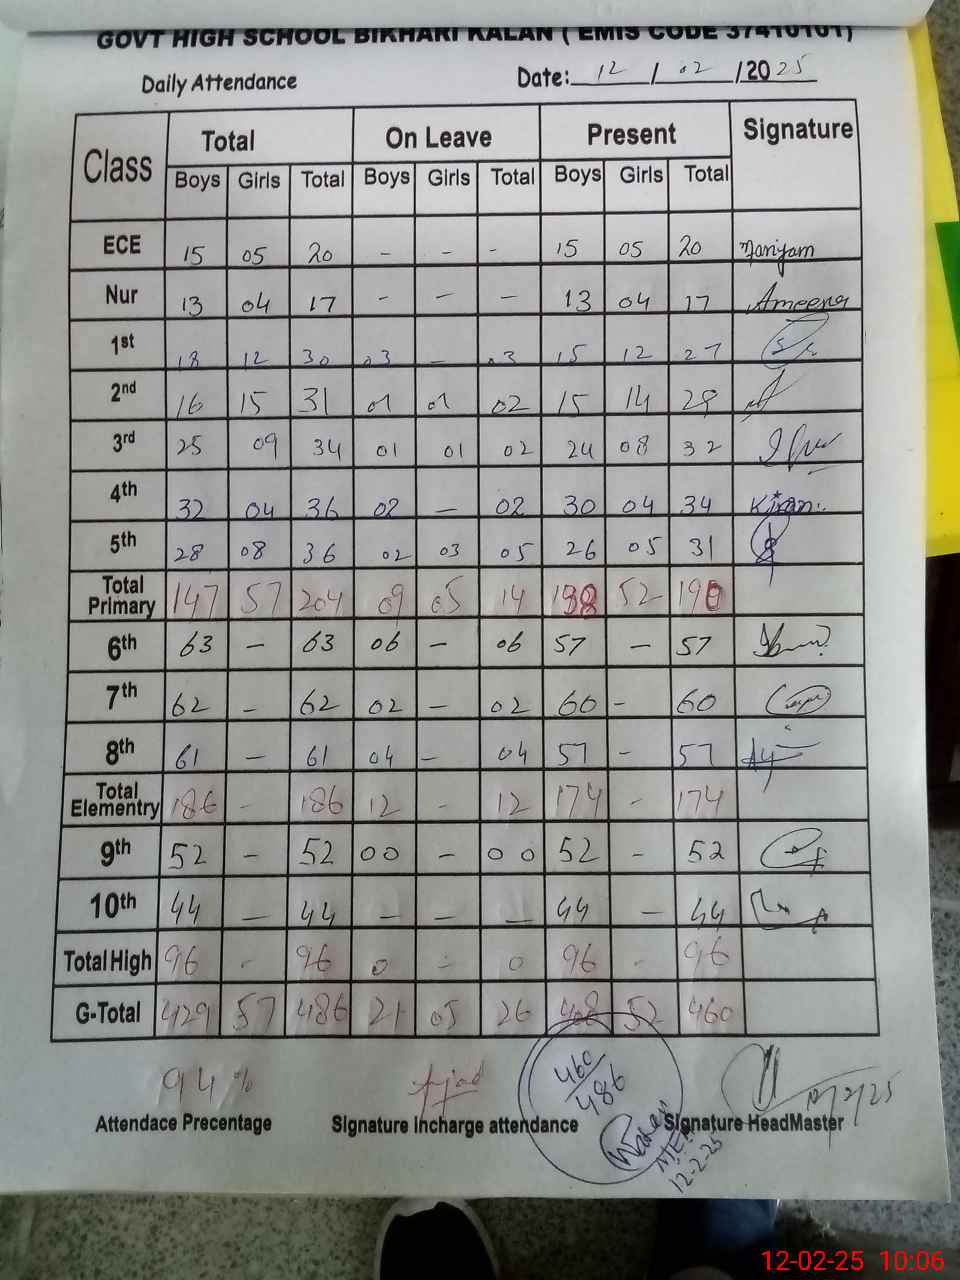 GOVT HIGH SCHOOL BIKHARI KALAN ( EMIS CODE 37410101)
Daily Attendance Date: 12 / 02 /2025
Class Total On Leave Present Signature
Boys Girls Total Boys Girls Total Boys Girls Total
ECE 15 05 20 - - - 15 05 20 Mariyam
Nur 13 04 17 - - - 13 04 17 Ameena
1st 18 12 30 03 - 03 15 12 27
2nd 16 15 31 01 01 02 15 14 29
3rd 25 09 34 01 01 02 24 08 32
4th 32 04 36 02 - 02 30 04 34 Kiran
5th 28 08 36 02 03 05 26 05 31
Total Primary 147 57 204 09 05 14 138 52 190
6th 63 - 63 06 - 06 57 - 57
7th 62 - 62 02 - 02 60 - 60
8th 61 - 61 04 - 04 57 - 57
Total Elementry 186 - 186 12 - 12 174 - 174
9th 52 - 52 00 - 00 52 - 52
10th 44 - 44 - - - 44 - 44
Total High 96 - 96 0 - 0 96 - 96
G-Total 429 57 486 21 05 26 408 52 460
94 %
460/486
12/2/25
Attendace Precentage Signature Incharge attendance Signature HeadMaster
MEA
12-2-25
12-02-25 10:06